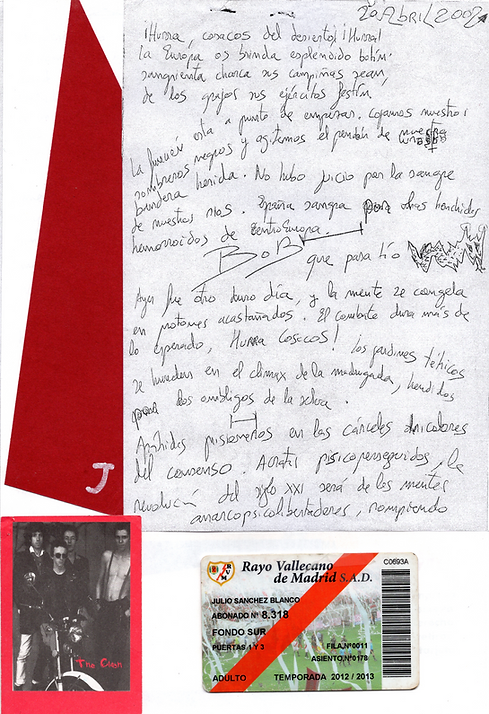 20 Abril 2002
¡Hurra, cosacos del desierto! ¡Hurra!
la Europa os brinda espléndido botín.
sangrienta charca sus campiñas sean,
de los grajos sus ejércitos festín.
La función está a punto de empezar. Cojamos nuestros
sombreros negros y agitemos el pendón de nuestra
bandera herida. No hubo juicio por la sangre
de nuestros ríos. España sangra por otras henchidas
hemorroides de CentroEuropa.
BoB que para tío
Ayer fue otro duro día, y la mente se congela
en acastañados. El combate dura más de
lo esperado, Hurra Cosacos! los jardines tétricos
se hunden en el climax de la madrugada, hendidos
por los ombligos de la selva.
prisioneros en las cárceles
del consenso. Acratas psicoperseguidos, la
revolución del siglo XXI será de los mentes
anarcopsicolibertadores, rompiendo
J
The Clash
Rayo Vallecano
de Madrid S.A.D.
C0693A
JULIO SANCHEZ BLANCO
ABONADO Nº 8.318
FONDO SUR
PUERTAS 1 Y 3
FILA,Nº0011
ASIENTO,Nº0178
ADULTO TEMPORADA 2012 / 2013